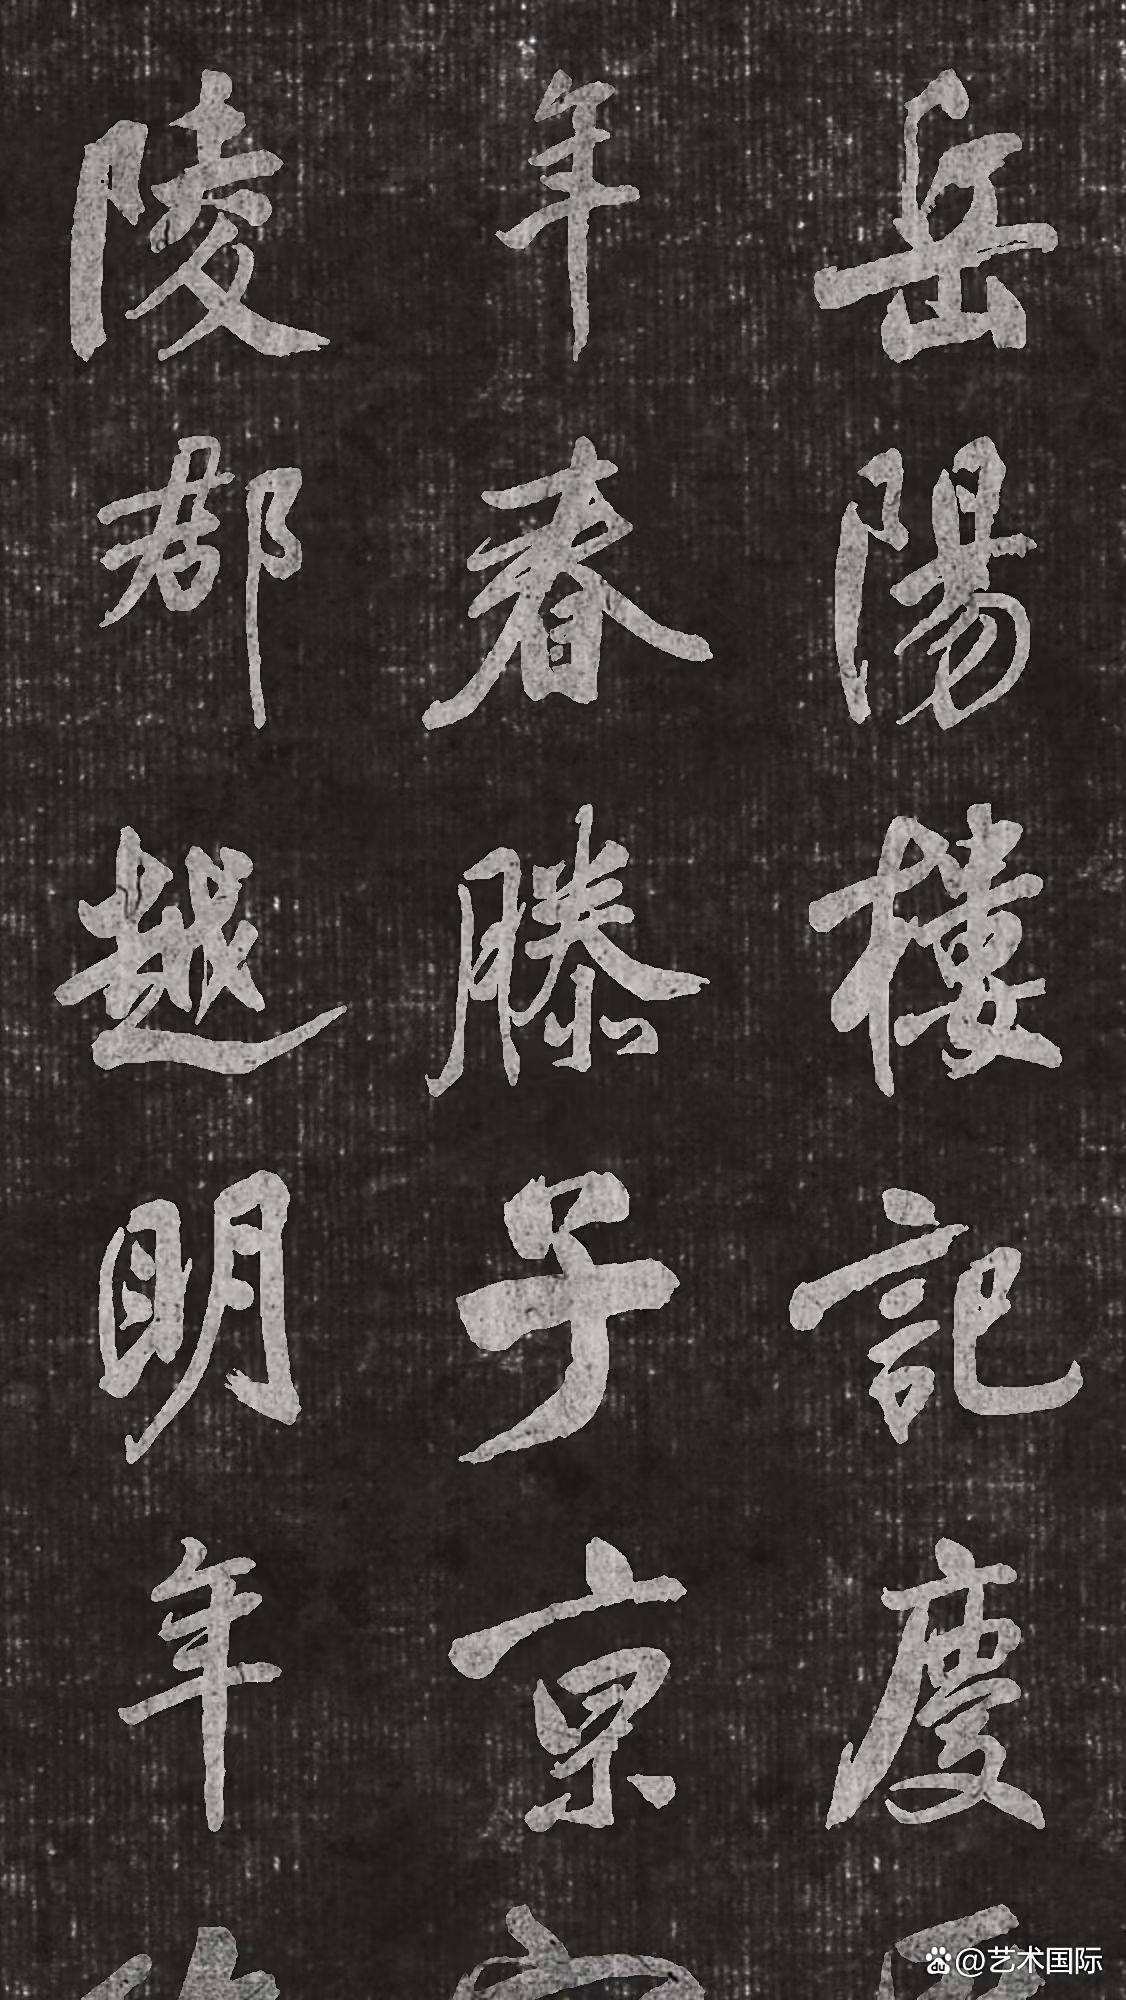 岳陽樓記慶
年春滕子京
陵郡越明年
@艺术国际